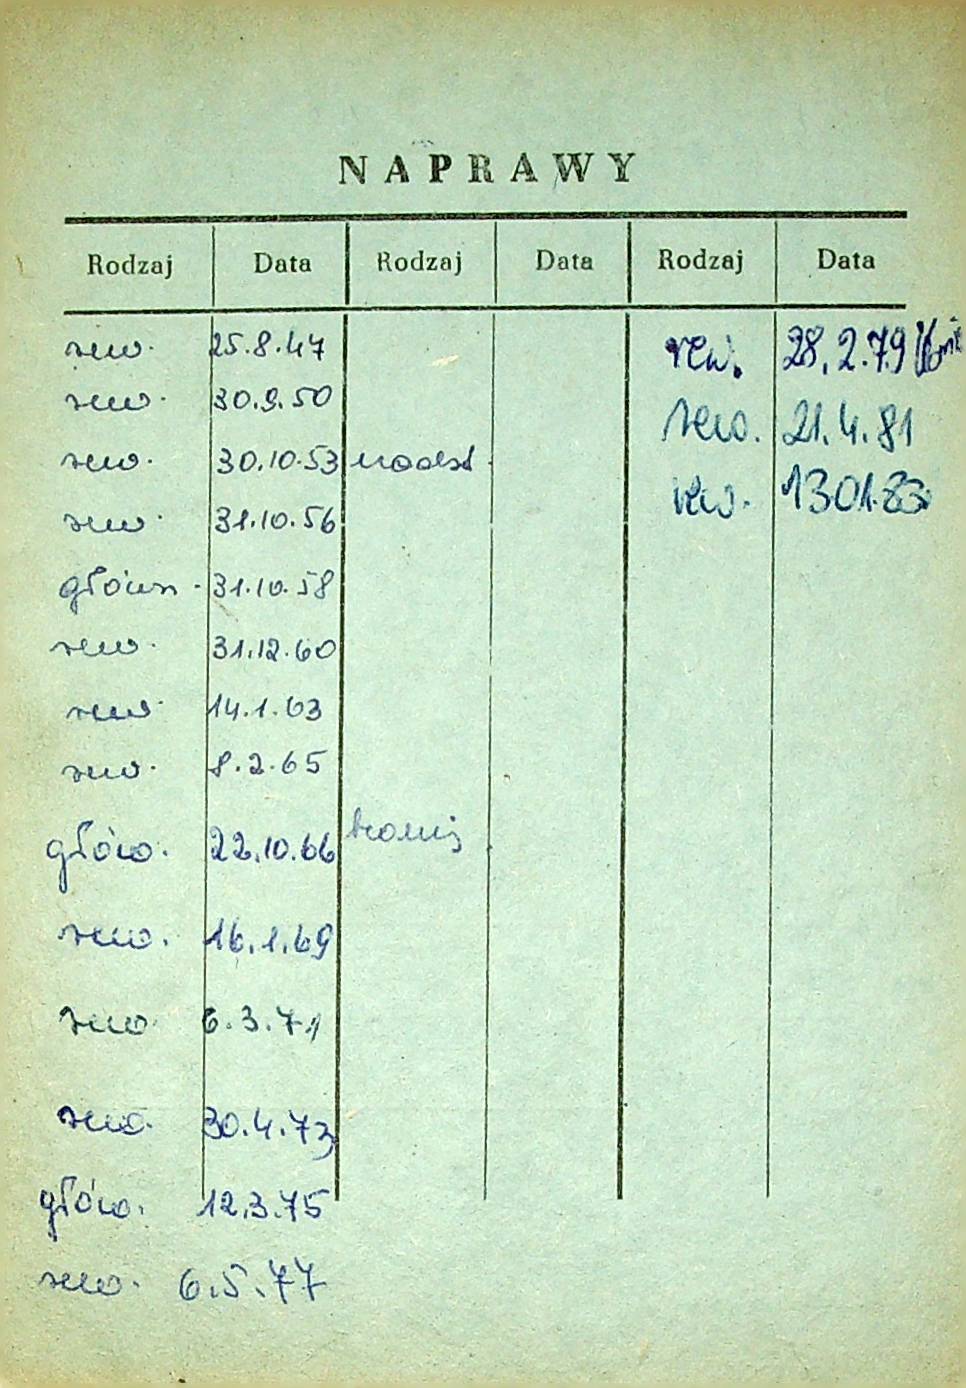 NAPRAWY
Rodzaj Data Rodzaj Data Rodzaj Data
rew. 25.8.47
rew. 30.9.50
rew. 30.10.53
rew. 31.10.56
główn. 31.10.58
rew. 31.12.60
rew. 14.1.63
rew. 8.2.65
głów. 22.10.66
rew. 16.1.69
rew. 6.3.71
rew. 30.4.73
głów. 12.3.75
rew. 6.5.77
rew. 28.2.79
rew. 21.4.81
rew. 13.01.83